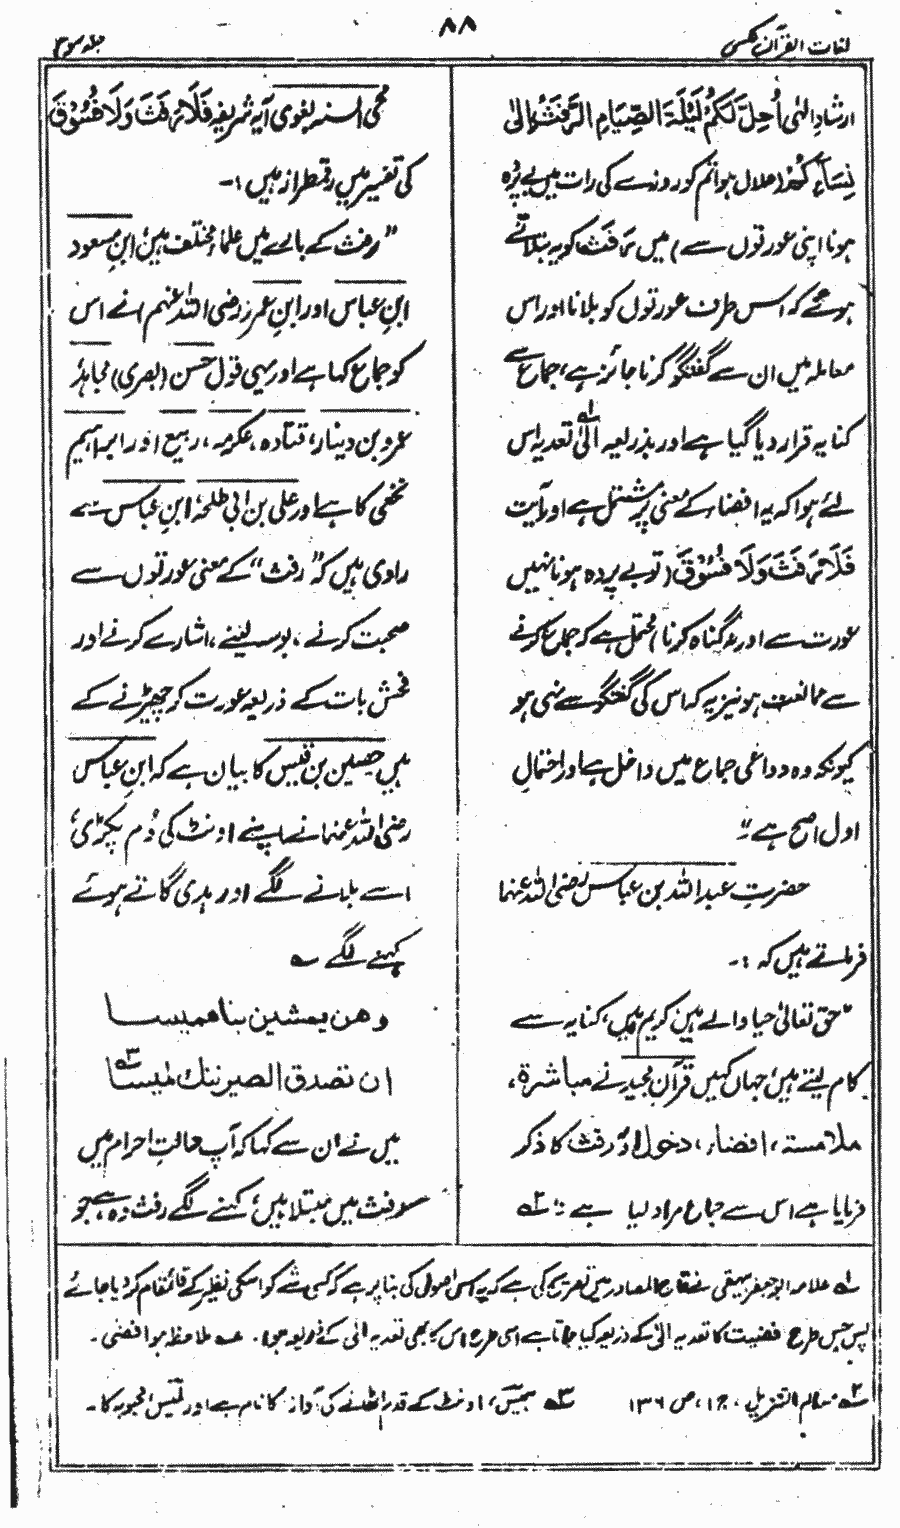 لغات القرآن عکسی
۸۸
جلد سوم
ارشادِ الٰہی أُحِلَّ لَكُمْ لَيْلَةَ الصِّيَامِ الرَّفَثُ إِلىٰ
نِسَآءِكُمْ (حلال ہوا تم کو روزے کی رات میں بے پردہ
ہونا اپنی عورتوں سے) میں رَفَثْ کو یہ بتلاتے
ہوئے کہ اس طرف عورتوں کو بلانا اور اس
معاملہ میں ان سے گفتگو کرنا جائز ہے، جماع سے
کنایہ قرار دیا گیا ہے اور بذریعہ الیٰ تعدیہ اس
لئے ہوا کہ یہ افضاء کے معنی پر مشتمل ہے اور آیت
فَلَا رَفَثَ وَلَا فُسُوْقَ (تو بے پردہ ہونا نہیں
عورت سے اور نہ گناہ کرنا) محتمل ہے کہ جماع کرنے
سے ممانعت ہو نیز یہ کہ اس کی گفتگو سے نہی ہو
کیونکہ وہ دواعی جماع میں داخل ہے اور احتمالِ
اول اصح ہے"۔
حضرت عبد اللہ بن عباس رضی اللہ عنہما
فرماتے ہیں کہ :۔
"حق تعالیٰ حیا والے ہیں کریم ہیں، کنایہ سے
کام لیتے ہیں، جہاں کہیں قرآن مجید نے مباشرۃ،
ملامستہ، افضاء، دخول اور رفث کا ذکر
فرمایا ہے اس سے جماع مراد لیا ہے"۔ ۲ے
محی السنہ بغوی آیہ شریفہ فَلَا رَفَثَ وَلَا فُسُوْقَ
کی تفسیر میں رقمطراز ہیں :۔
"رفث کے بارے میں علماء مختلف ہیں، ابنِ مسعود
ابنِ عباس اور ابنِ عمر رضی اللہ عنہم نے اس
کو جماع کہا ہے اور یہی قول حسن (بصری) مجاہد،
عمرو بن دینار، قتادہ، عکرمہ، ربیع اور ابراہیم
نخعی کا ہے اور علی بن ابی طلحہ، ابنِ عباس سے
راوی ہیں کہ "رفث" کے معنی عورتوں سے
صحبت کرنے، بوسہ لینے، اشارے کرنے اور
فحش بات کے ذریعہ عورت کو چھیڑنے کے
ہیں حصین بن قیس کا بیان ہے کہ ابنِ عباس
رضی اللہ عنہما نے اپنے اونٹ کی دُم پکڑی،
اسے بلانے لگے اور ہدی گاتے ہوئے
کہنے لگے ؎
وهن يمشين بنا هميسا
ان تصدق الطير ننك لميسا ۳ے
میں نے ان سے کہا کہ آپ حالتِ احرام میں
رفث میں مبتلا ہیں، کہنے لگے رفث وہ ہے جو
۱ے علامہ ابو جعفر بیہقی نے تاج المصادر میں تصریح کی ہے کہ یہ اس اصول کی بنا پر ہے کہ کسی شے کو اسکی نظیر کے قائمقام کر دیا جائے
پس جس طرح افضیت کا تعدیہ الیٰ کے ذریعہ کیا جاتا ہے اسی طرح اس کا بھی تعدیہ الیٰ کے ذریعہ ہوا۔ ملاحظہ ہو افضی۔
۲ے معالم التنزیل، ج۱، ص ۱۳۶
۳ے ہمیس، اونٹ کے قدم اٹھانے کی آواز کا نام ہے اور لمیس، محبوبہ کا۔